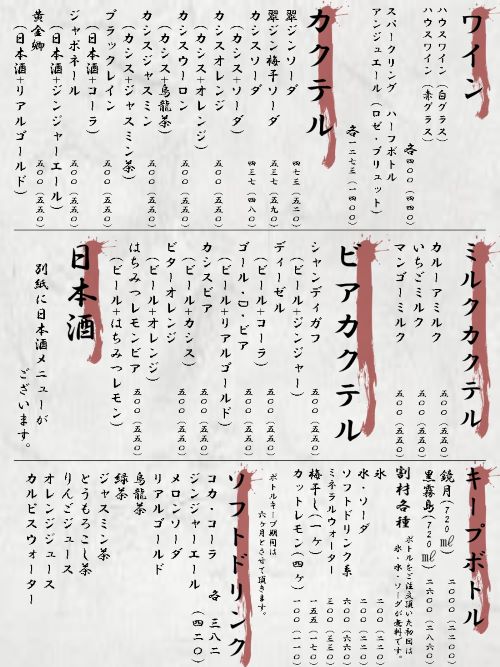 ワイン
ハウスワイン(白グラス)
ハウスワイン(赤グラス)
各四〇〇(四四〇)
スパークリング ハーフボトル
アンジュエール(ロゼ・ブリュット)
各一二七三(一四〇〇)
カクテル
翠ジンソーダ 四七三(五二〇)
翠ジン梅干ソーダ 五三七(五九〇)
カシスソーダ 四三七(四八〇)
(カシス+ソーダ)
カシスオレンジ 五〇〇(五五〇)
(カシス+オレンジ)
カシスウーロン 五〇〇(五五〇)
(カシス+烏龍茶)
カシスジャスミン 五〇〇(五五〇)
(カシス+ジャスミン茶)
ブラックレイン 五〇〇(五五〇)
(日本酒+コーラ)
ジャポネール 五〇〇(五五〇)
(日本酒+ジンジャーエール)
黄金郷 五〇〇(五五〇)
(日本酒+リアルゴールド)
ミルクカクテル
カルーアミルク 五〇〇(五五〇)
いちごミルク 五〇〇(五五〇)
マンゴーミルク 五〇〇(五五〇)
ビアカクテル
シャンディガフ 五〇〇(五五〇)
(ビール+ジンジャー)
ディーゼル 五〇〇(五五〇)
(ビール+コーラ)
ゴール・ロ・ビア 五〇〇(五五〇)
(ビール+リアルゴールド)
カシスビア 五〇〇(五五〇)
(ビール+カシス)
ビターオレンジ 五〇〇(五五〇)
(ビール+オレンジ)
はちみつレモンビア 五〇〇(五五〇)
(ビール+はちみつレモン)
日本酒
別紙に日本酒メニューが
ございます。
キープボトル
鏡月(720㎖) 二〇〇〇(二二〇〇)
黒霧島(720㎖) 二六〇〇(二八六〇)
割材各種
ボトルをご注文頂いた初回は
氷・水・ソーダが無料です。
氷 二〇〇(二二〇)
水・ソーダ 二〇〇(二二〇)
ソフトドリンク系 六〇〇(六六〇)
ミネラルウォーター 三〇〇(三三〇)
梅干し(一ヶ) 一五五(一七〇)
カットレモン(四ヶ) 一〇〇(一一〇)
ボトルキープ期間は
六ヶ月とさせて頂きます。
ソフトドリンク
各 三八二(四二〇)
コカ・コーラ
ジンジャーエール
メロンソーダ
リアルゴールド
烏龍茶
緑茶
ジャスミン茶
とうもろこし茶
りんごジュース
オレンジジュース
カルピスウォーター